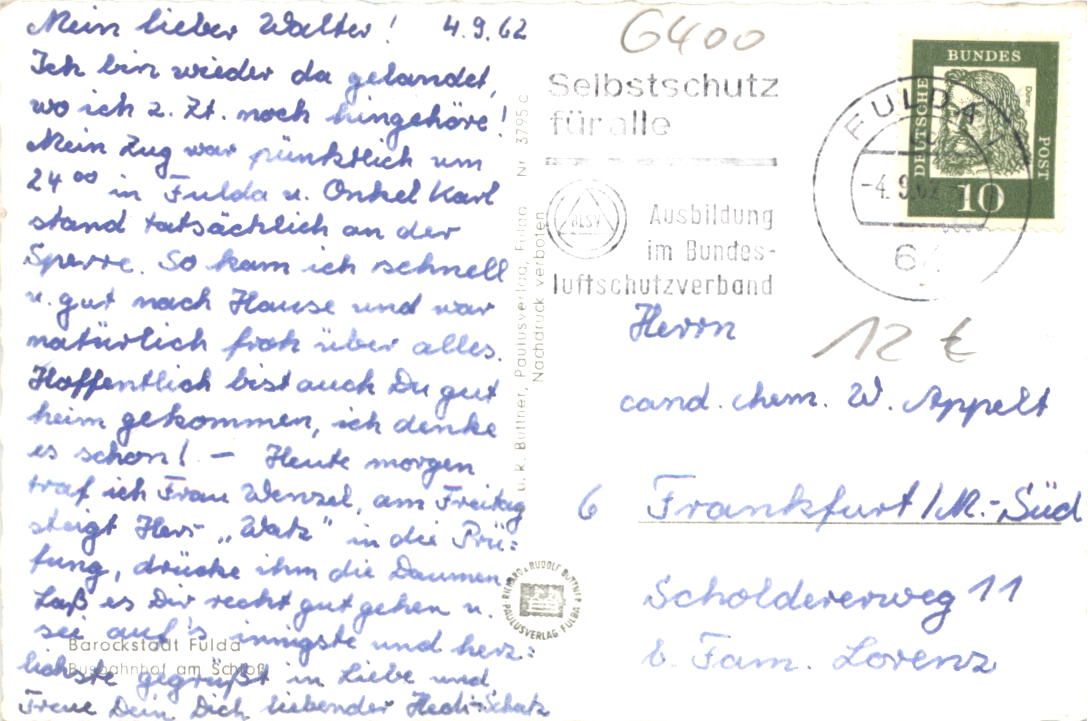 Mein lieber Walter! 4.9.62
Ich bin wieder da gelandet,
wo ich z. Zt. noch hingehöre!
Mein Zug war pünktlich um
24⁰⁰ in Fulda u. Onkel Karl
stand tatsächlich an der
Sperre. So kam ich schnell
u. gut nach Hause und war
natürlich froh über alles.
Hoffentlich bist auch Du gut
heim gekommen, ich denke
es schon! — Heute morgen
traf ich Frau Wenzel, am Freitag
steigt Herr „Watz" in die Prü=
fung, drücke ihm die Daumen.
Laß es Dir recht gut gehen u.
sei auf's innigste und herz=
lichste gegrüßt in Liebe und
Treue Dein Dich liebender Hedi-Schatz
Barockstadt Fulda
Busbahnhof am Schloß
u. R. Büttner, Paulusverlag, Fulda Nr. 3795 c
Nachdruck verboten
RICHARD & RUDOLF BÜTTNER
PAULUSVERLAG FULDA
6400
Selbstschutz
für alle
BLSV
Ausbildung
im Bundes-
luftschutzverband
FULDA
-4.9.62
DEUTSCHE
BUNDES
POST
10
12 €
Herrn
cand. chem. W. Appelt
6 Frankfurt/M.-Süd
Scholdererweg 11
b. Fam. Lorenz